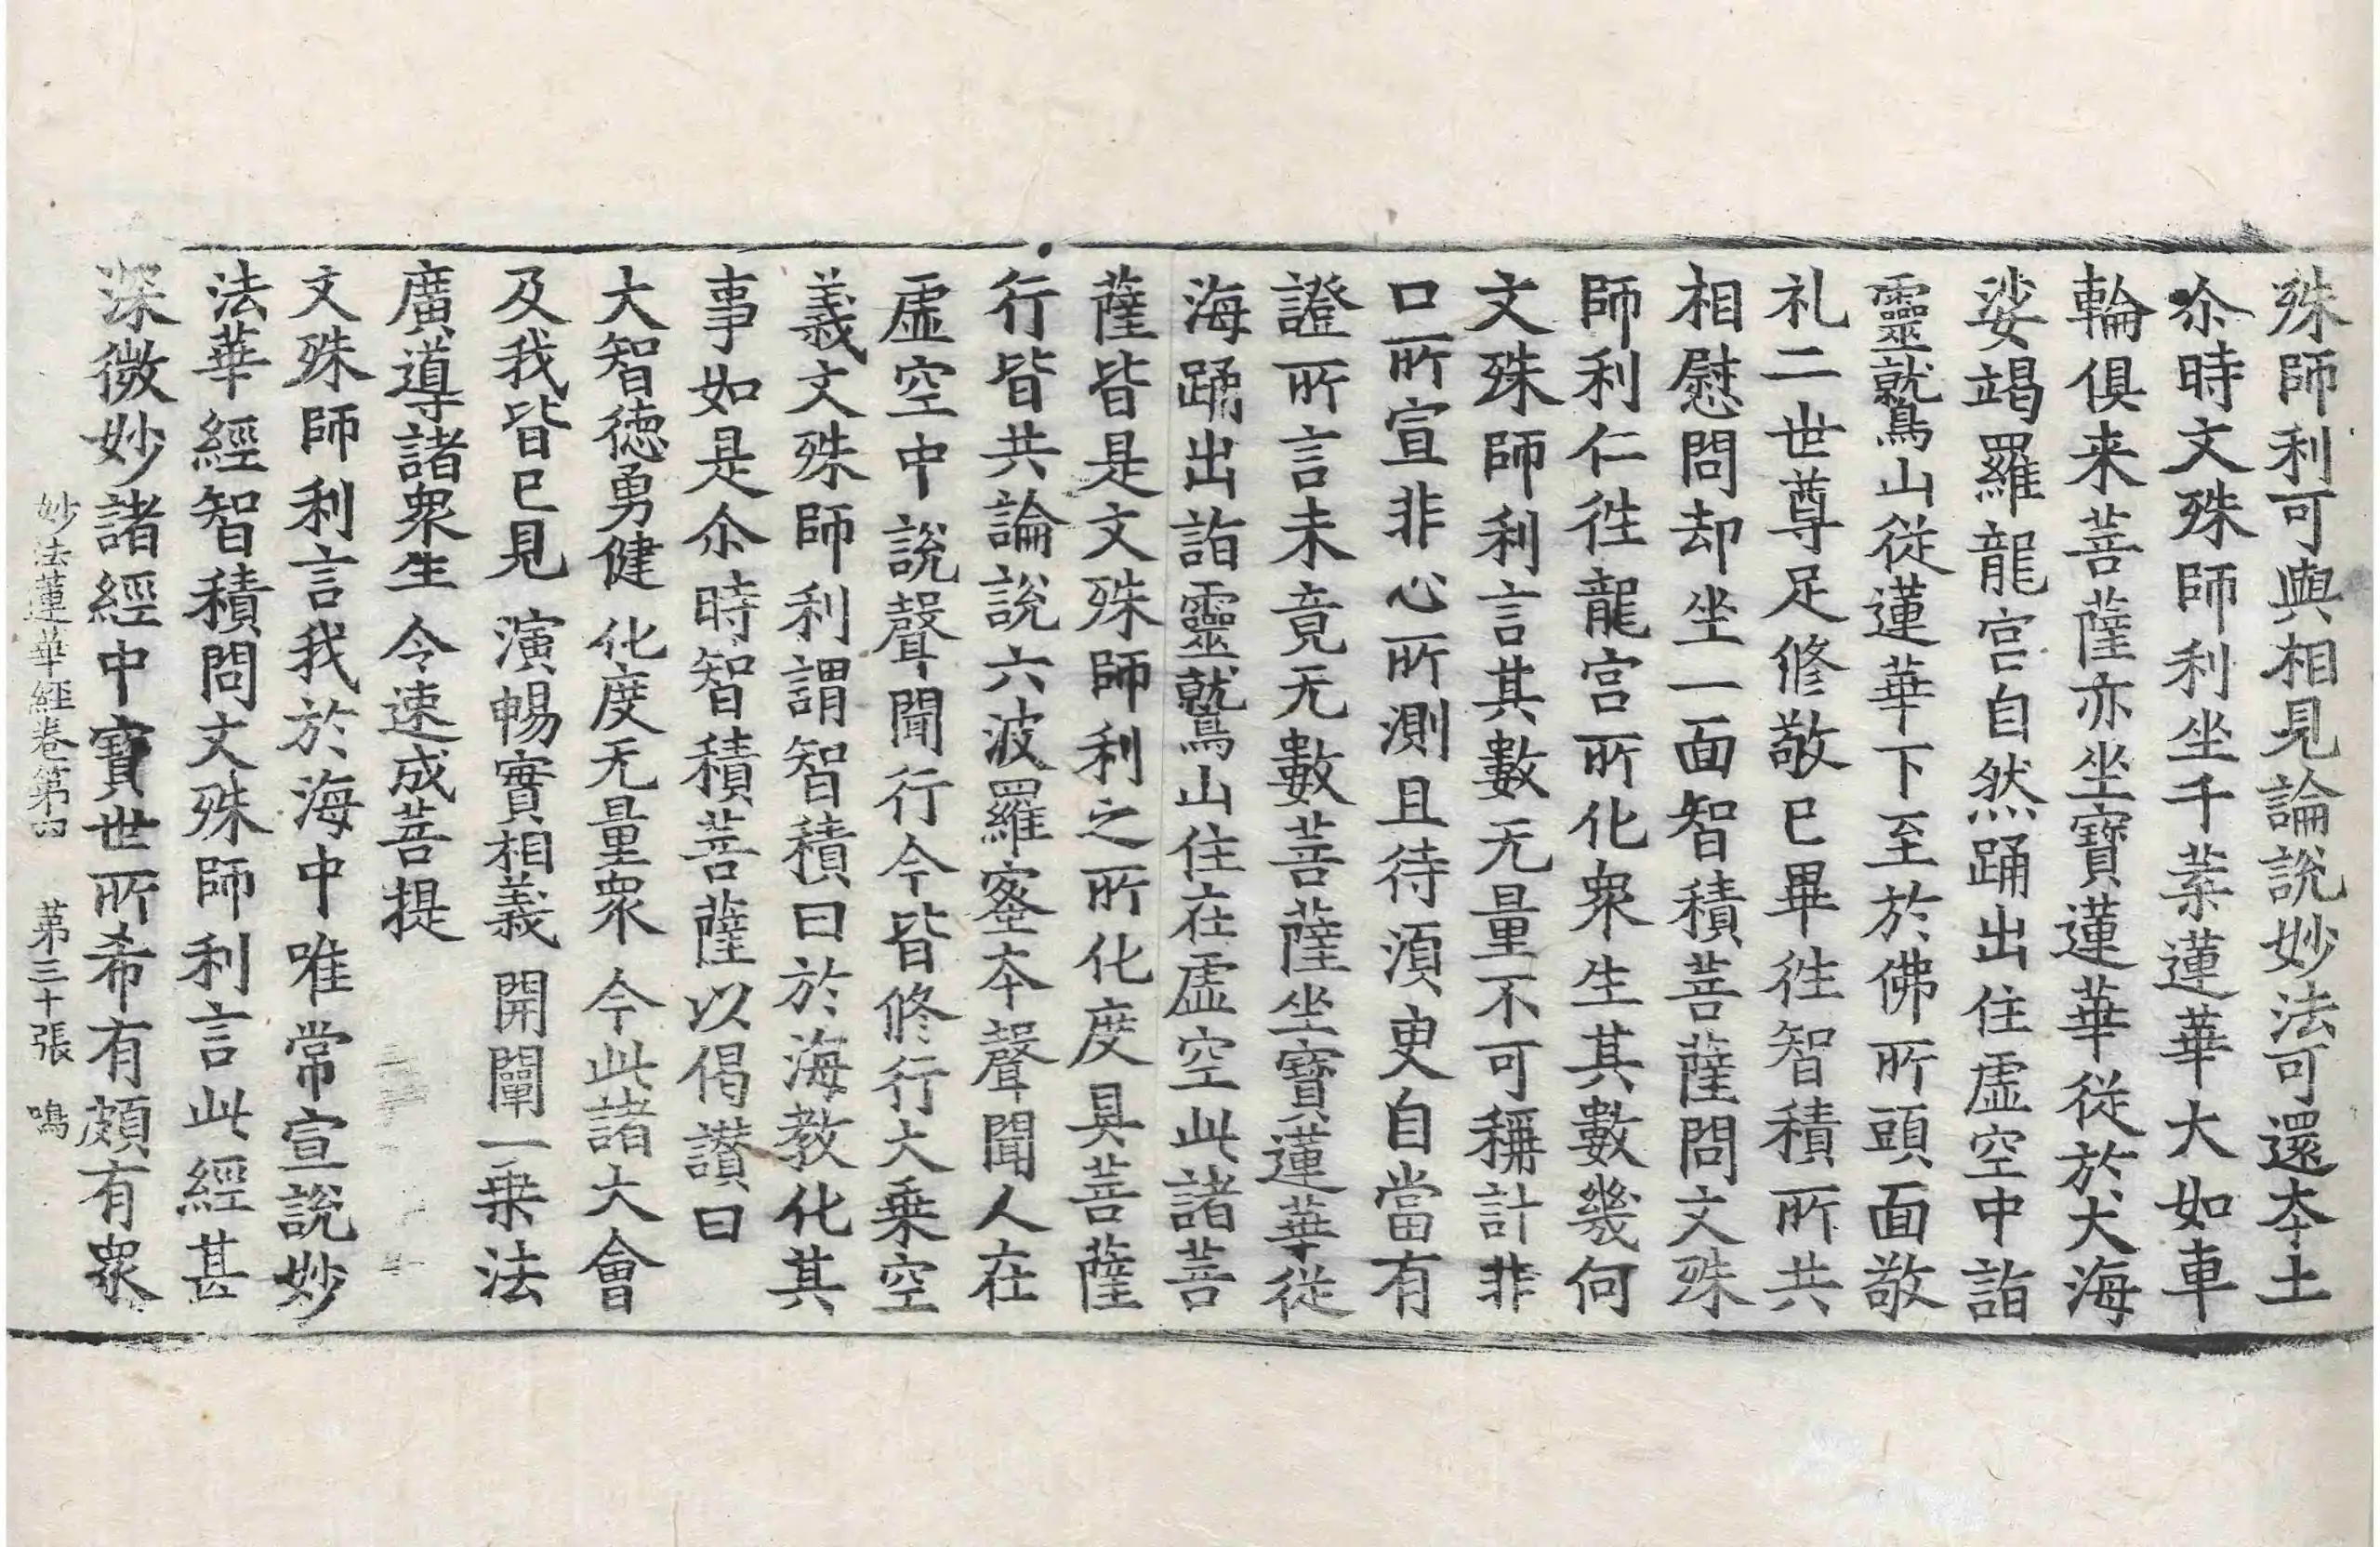 殊師利可與相見論說妙法可還本土
尒時文殊師利坐千葉蓮華大如車
輪俱来菩薩亦坐寶蓮華從於大海
娑竭羅龍宮自然踊出住虛空中詣
靈鷲山從蓮華下至於佛所頭面敬
礼二世尊足修敬已畢往智積所共
相慰問却坐一面智積菩薩問文殊
師利仁往龍宮所化衆生其數幾何
文殊師利言其數无量不可稱計非
口所宣非心所測且待須臾自當有
證所言未竟无數菩薩坐寶蓮華從
海踊出詣靈鷲山住在虛空此諸菩
薩皆是文殊師利之所化度具菩薩
行皆共論說六波羅蜜本聲聞人在
虛空中說聲聞行今皆修行大乗空
義文殊師利謂智積曰於海教化其
事如是尒時智積菩薩以偈讃曰
大智德勇健 化度无量衆 今此諸大會
及我皆已見 演暢實相義 開闡一乗法
廣導諸衆生 令速成菩提
文殊師利言我於海中唯常宣說妙
法華經智積問文殊師利言此經甚
深微妙諸經中寶世所希有頗有衆
妙法蓮華經卷第四 第三十張 鳴